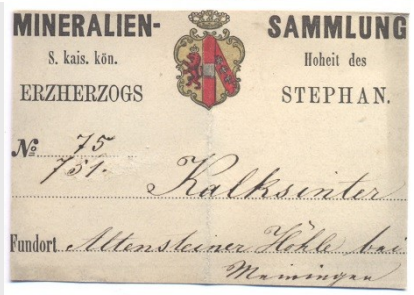 MINERALIEN- SAMMLUNG
S. kais. kön. Hoheit des
ERZHERZOGS STEPHAN.
№ 75
751.
Kalksinter
Fundort Altensteiner Höhle bei
Meiningen